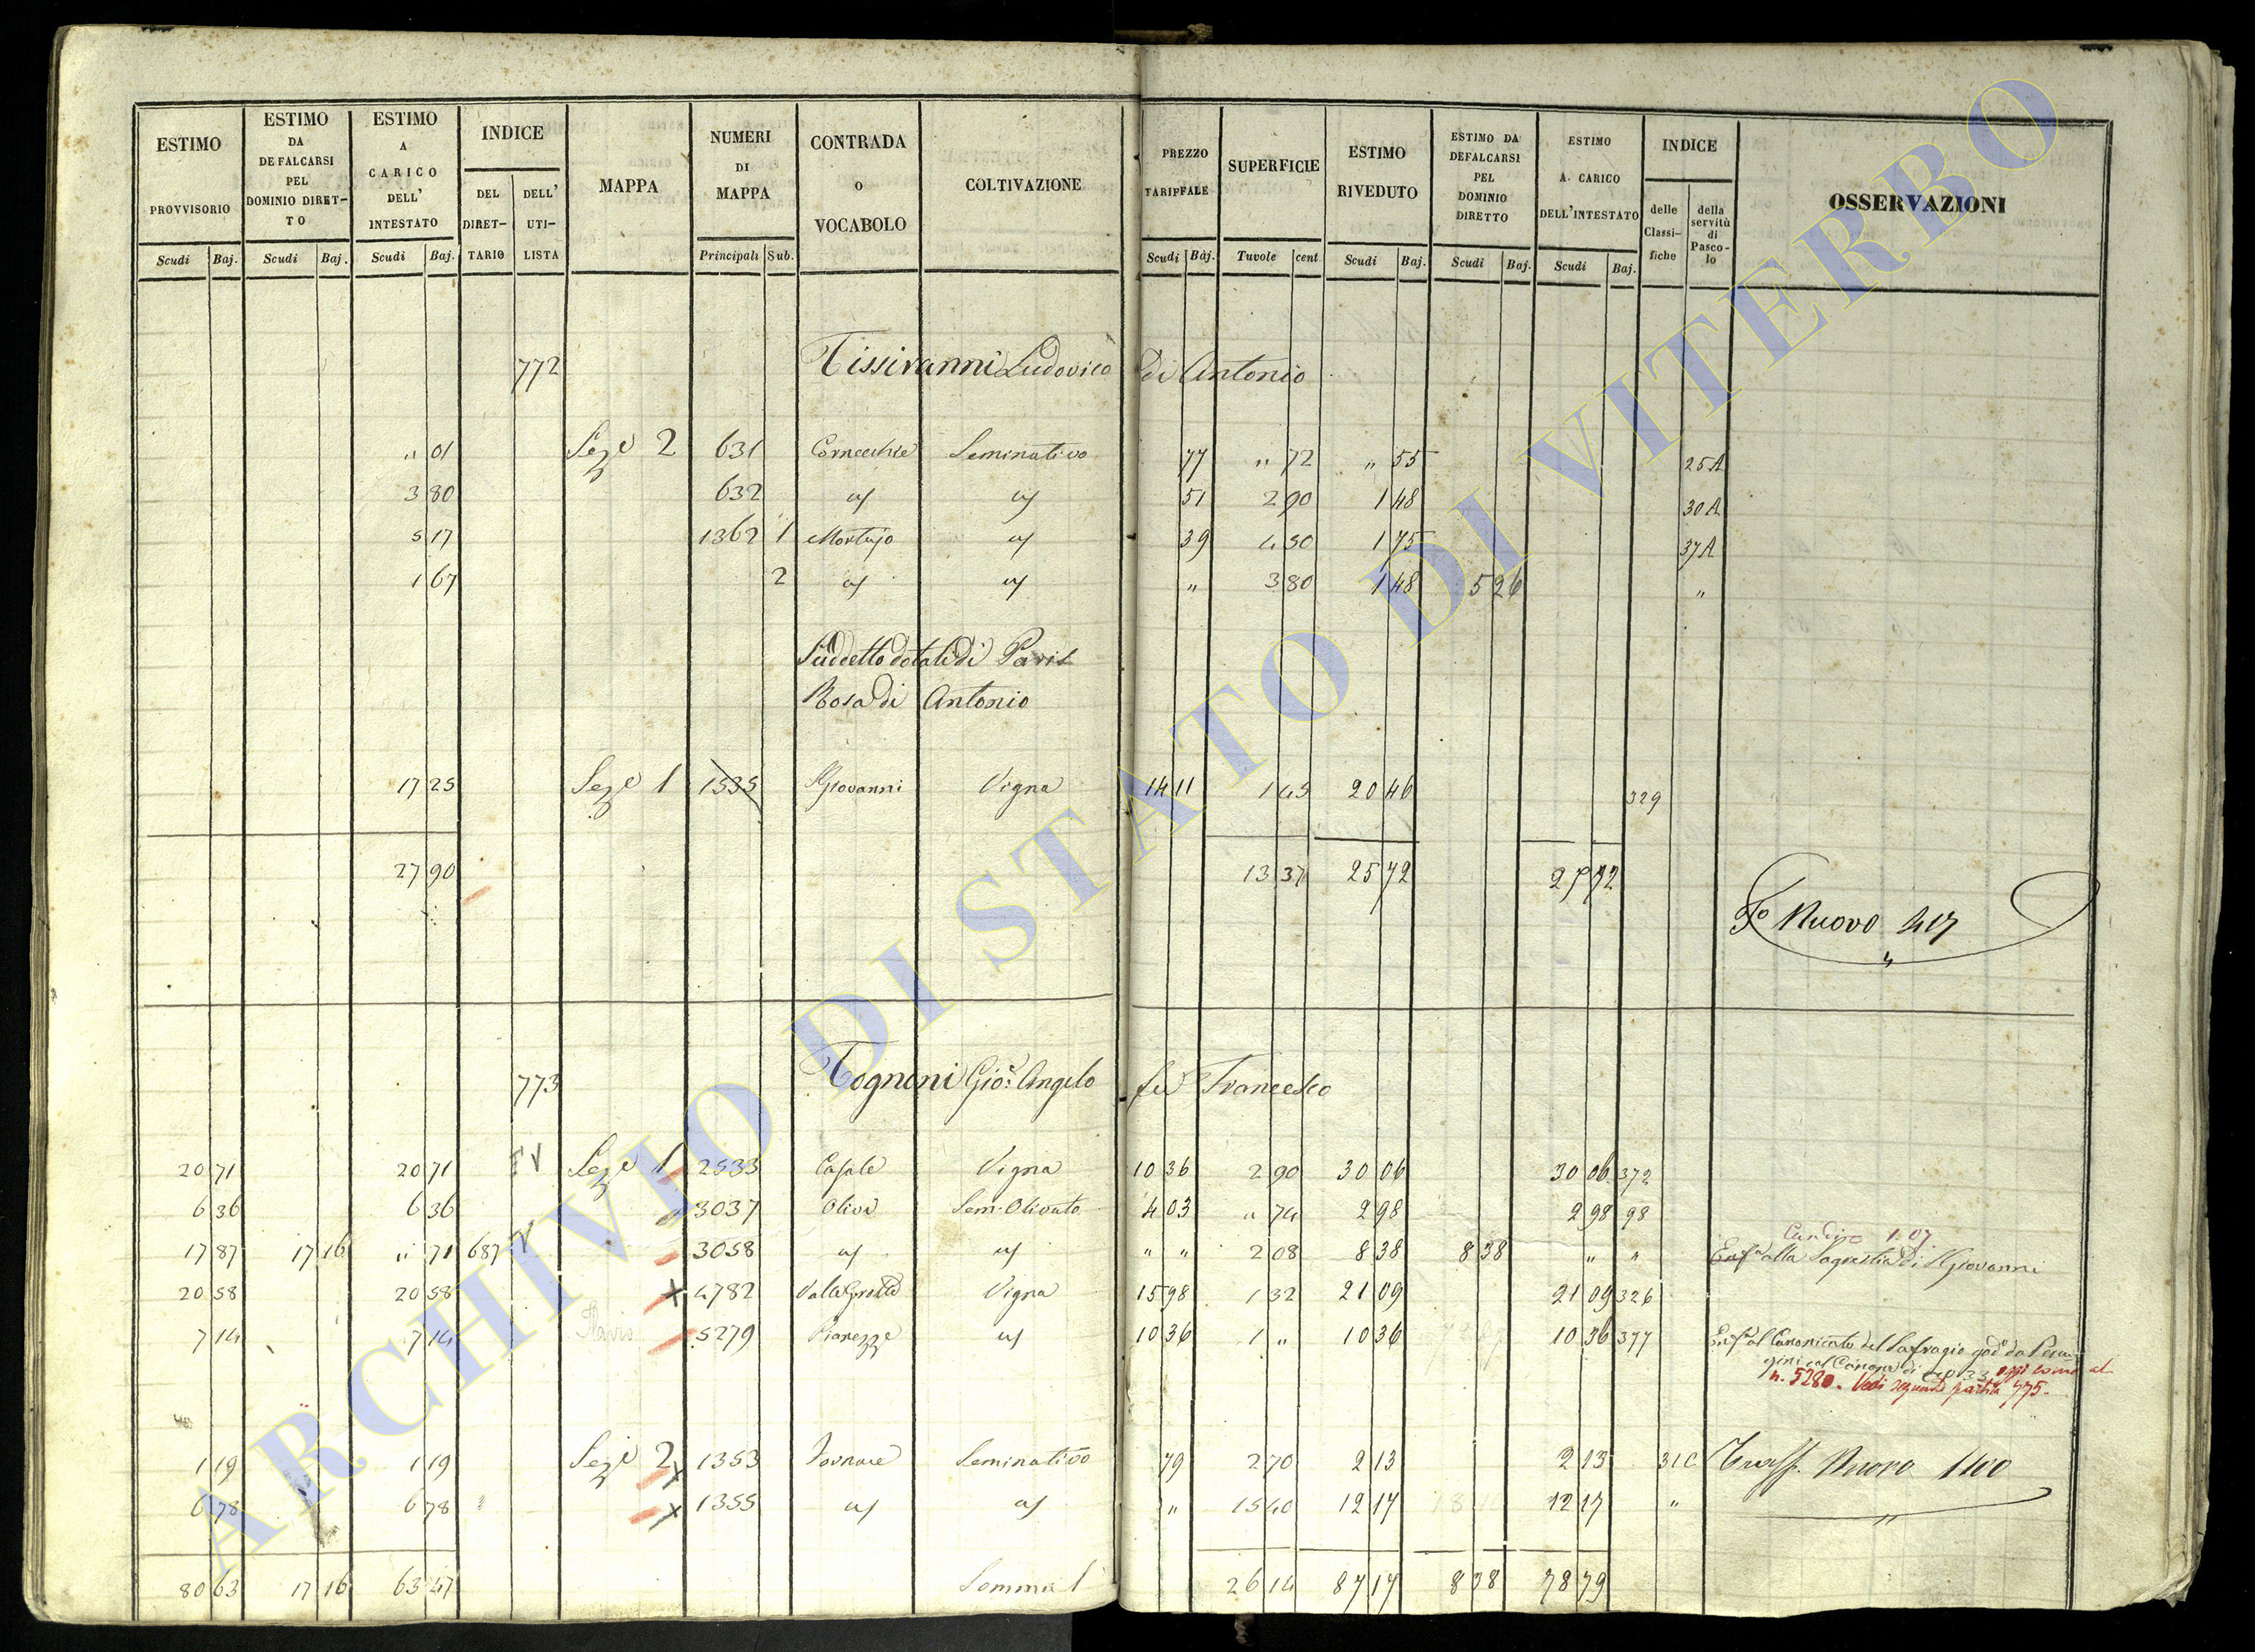 ESTIMO PROVVISORIO Scudi Baj.
ESTIMO DA DEFALCARSI PEL DOMINIO DIRETTO Scudi Baj.
ESTIMO A CARICO DELL' INTESTATO Scudi Baj.
INDICE DEL DIRETTARIO DELL' UTILISTA
MAPPA
NUMERI DI MAPPA Principali Sub.
CONTRADA O VOCABOLO
COLTIVAZIONE
PREZZO TARIFFALE Scudi Baj.
SUPERFICIE Tavole cent
ESTIMO RIVEDUTO Scudi Baj.
ESTIMO DA DEFALCARSI PEL DOMINIO DIRETTO Scudi Baj.
ESTIMO A. CARICO DELL'INTESTATO Scudi Baj.
INDICE delle Classifiche della servitù di Pascolo
OSSERVAZIONI
772 Tissivanni Ludovico di Antonio
" 01 Seze 2 631 Cornecchie Seminativo 77 " 72 " 55 25A
3 80 632 " " 51 2 90 1 48 30A
5 17 1362 1 Mortajo " 39 4 50 1 75 37A
1 67 2 " " " 3 80 1 48 5 26 "
Suddetto dotali di Paris
Rosa di Antonio
17 25 Seze 1 1535 S Giovanni Vigna 14 11 1 45 20 46 329
27 90 13 37 25 72 25 72
Fo Nuovo 417
773 Tognoni Gio: Angelo fu Francesco
20 71 20 71 Seze 1 2533 Casale Vigna 10 36 2 90 30 06 30 06 372
6 36 6 36 3037 Oliva Sem. Olivato 4 03 " 74 2 98 2 98 98
17 87 17 16 " 71 687 3058 " " " " 2 08 8 38 8 38 " "
1:07
Enfa alla Sagrestia di S Giovanni
20 58 20 58 4782 Valle Vigna 15 98 1 32 21 09 21 09 326
7 14 7 14 5279 Pianezze " 10 36 1 " 10 36 10 36 377
Enfa al Canonicato del Safragio god° da
col Canone di oggi al
n. 5280. Vedi seguente partita 775.
1 19 1 19 Seze 2 1353 Fornace Seminativo 79 2 70 2 13 2 13 31C
Trasp. Nuovo 1100
6 78 6 78 1355 " " " 15 40 12 17 12 17 "
80 63 17 16 63 47 Somma 26 14 87 17 8 38 78 79
ARCHIVIO DI STATO DI VITERBO